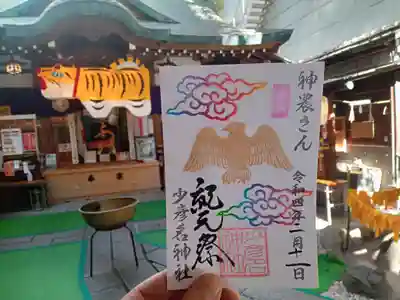 神農さん
令和四年二月十一日
紀元祭
少彦名神社